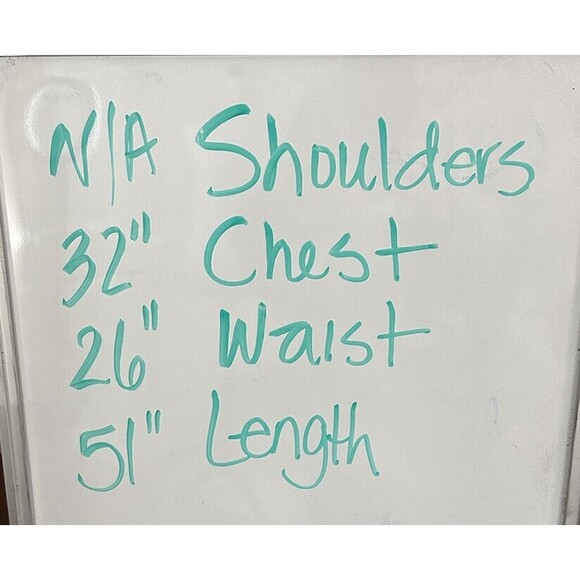 N/A Shoulders
32" Chest
26" Waist
51" Length